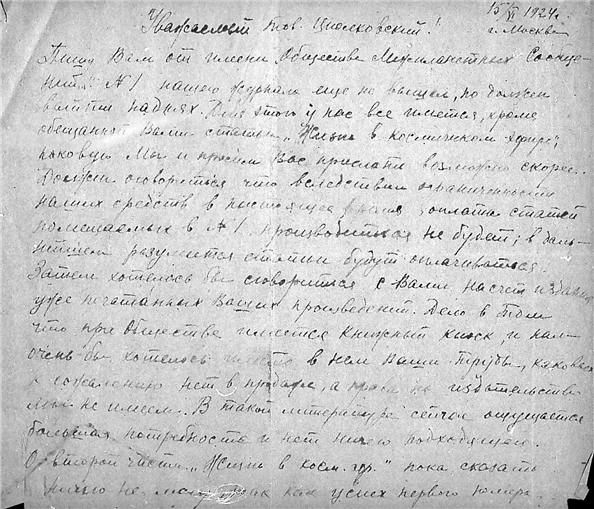 15/VI 1924 г.
г. Москва
Уважаемый тов. Циолковский!
Пишу Вам от имени „Общества Межпланетных Сообще-
ний". № 1 нашего журнала еще не вышел, но должен
выйти на днях. Для этого у нас все имеется, кроме
обещанной Вами статьи „Жизнь в космическом эфире",
каковую мы и просим Вас прислать возможно скорее.
Должен оговориться что вследствии ограниченности
наших средств в настоящее время оплата статей
помещаемых в № 1 производиться не будет; в даль-
нейшем разумеется статьи будут оплачиваться.
Затем хотелось бы сговориться с Вами насчет издания
уже печатанных Ваших произведений. Дело в том
что при Обществе имеется книжный киоск, и нам
очень бы хотелось иметь в нем Ваши труды, каковых
к сожалению нет в продаже, а права на издательство
мы не имеем. В такой литературе сейчас ощущается
большая потребность и нет ничего подходящего.
О второй части „Жизнь в косм. эф." пока сказать
ничего не могу, так как успех первого номера